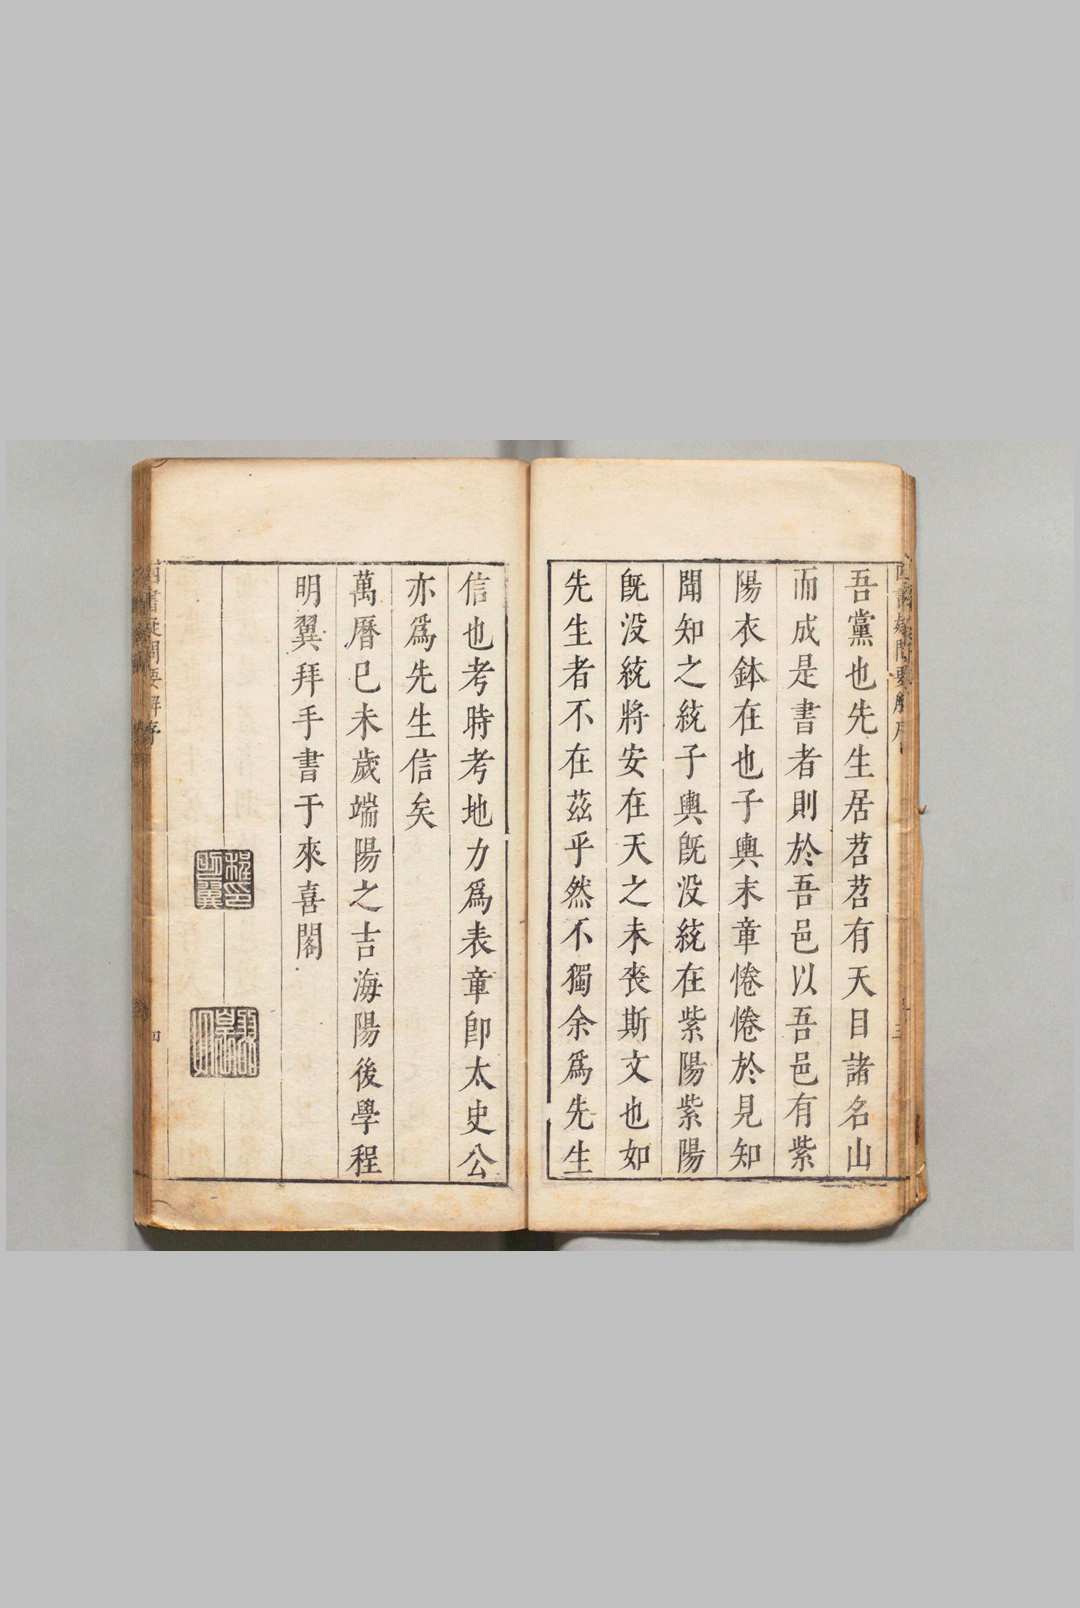 吾黨也先生居苕苕有天目諸名山
而成是書者則於吾邑以吾邑有紫
陽衣鉢在也子輿末章惓惓於見知
聞知之統子輿旣没統在紫陽紫陽
旣没統將安在天之未喪斯文也如
先生者不在茲乎然不獨余爲先生
信也考時考地力爲表章卽太史公
亦爲先生信矣
萬曆巳未歲端陽之吉海陽後學程
明翼拜手書于來喜閣
程印
明翼
四書疑問要解序
四